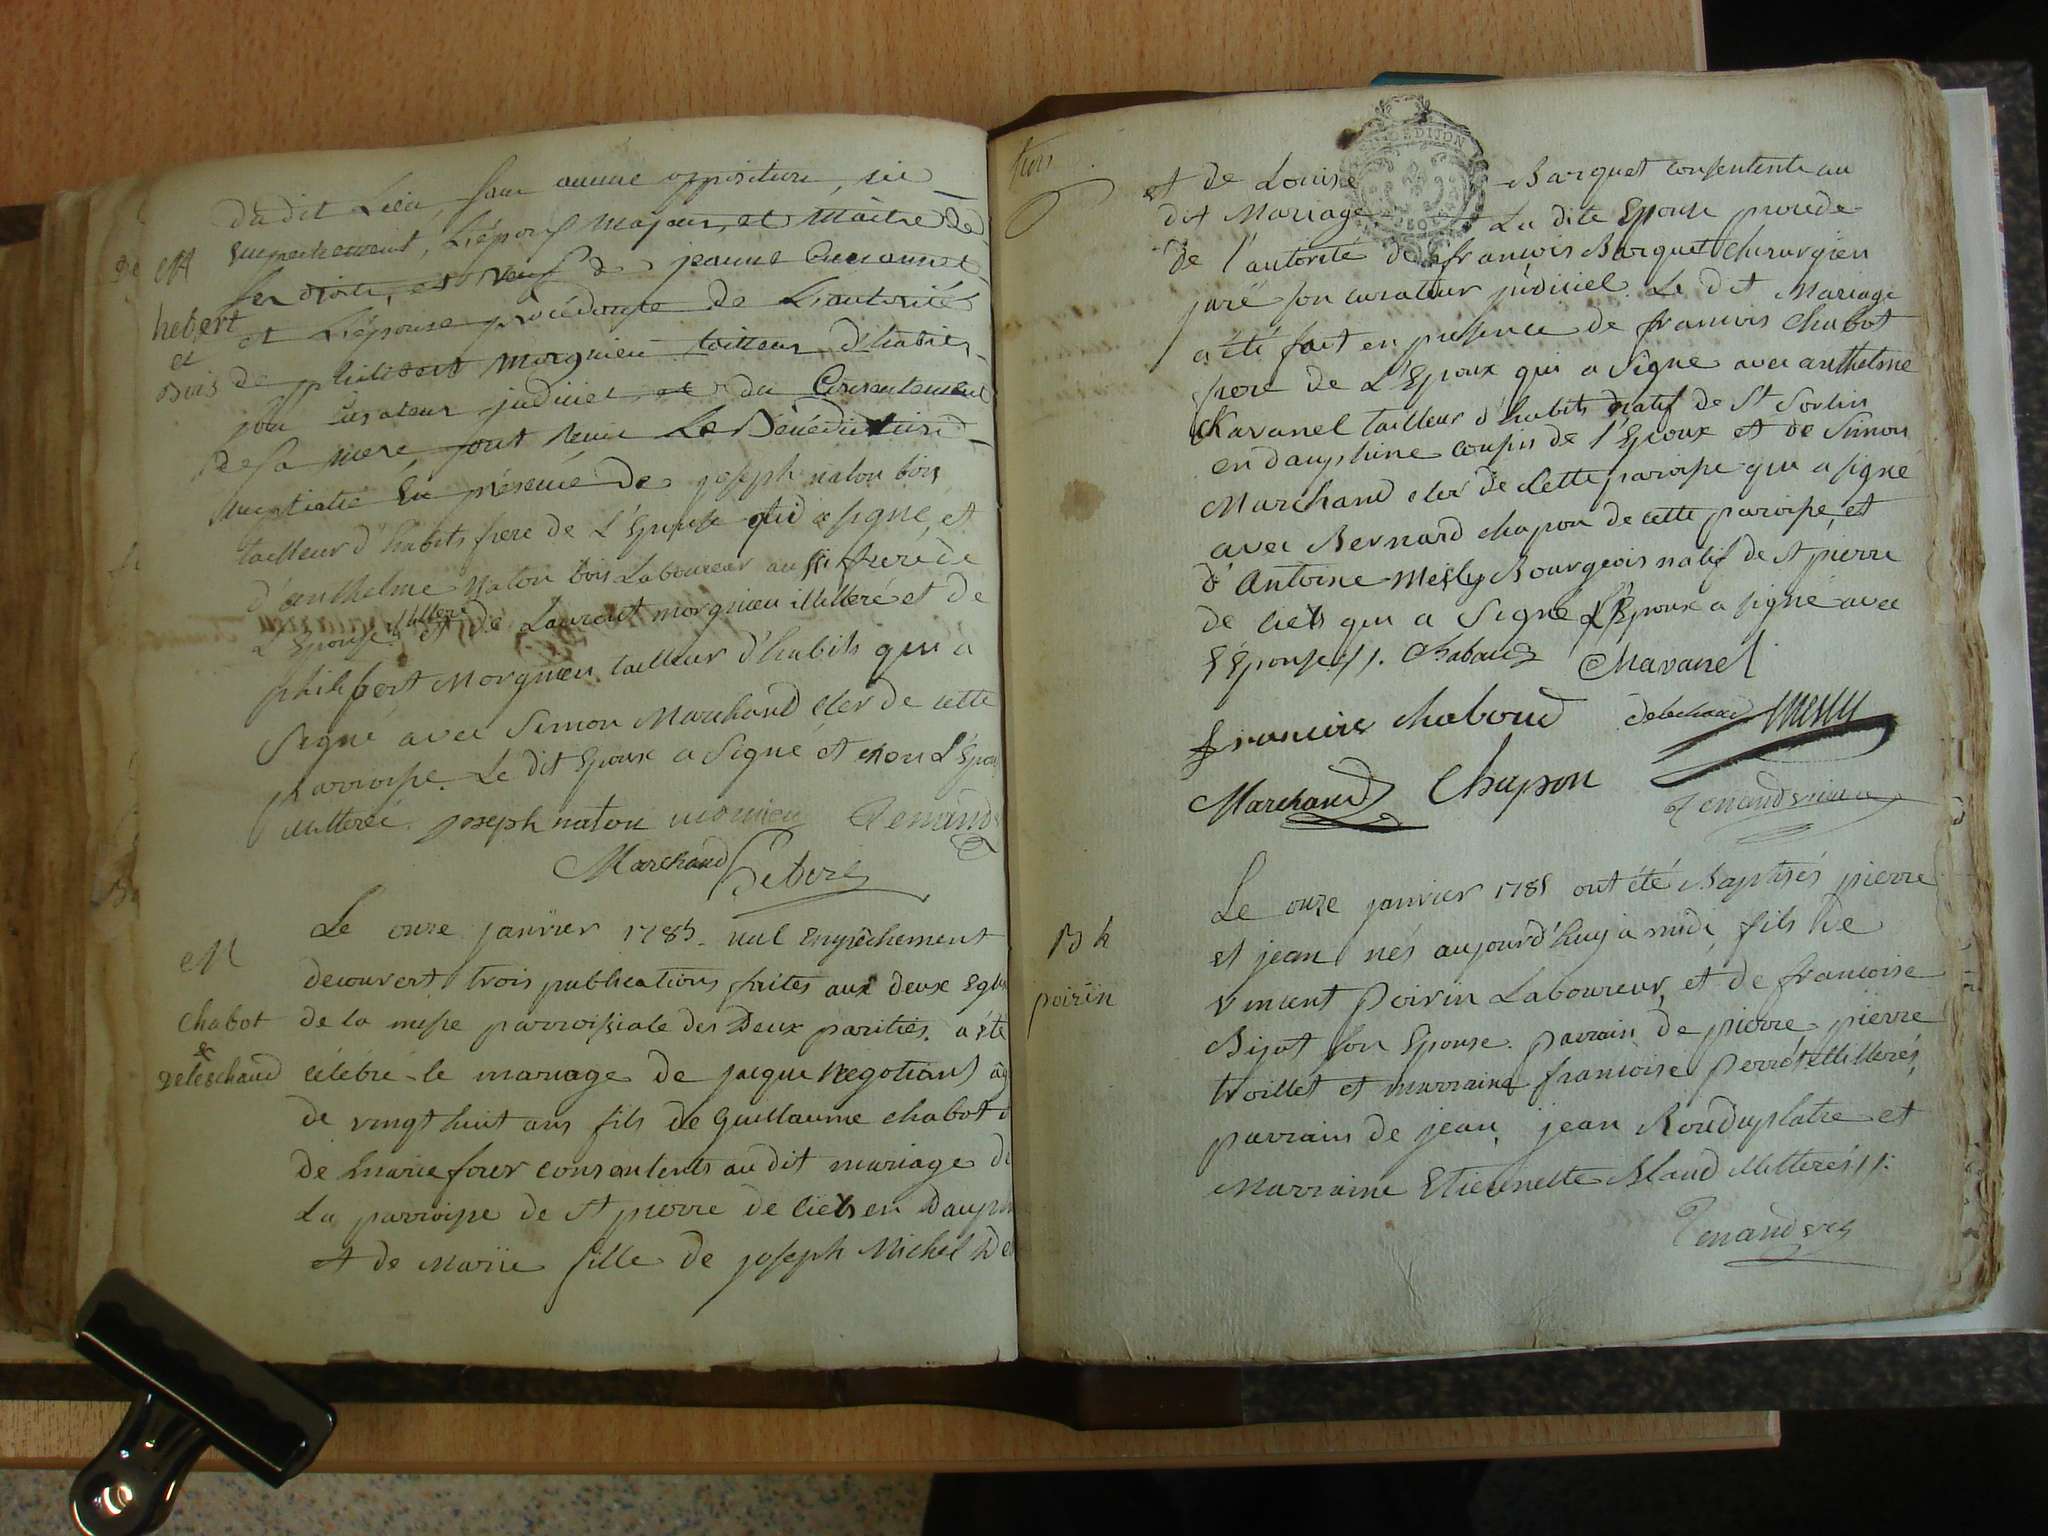 du dit Lieu, sans aucune opposition, ni
empechement, L'époux Majeur, et Maître de
ses droits, et veuf de jeanne
et L'épouse procédante de L'autorité
de philibert Morgnieu tailleur d'habits
son Curateur judiciel et du Consentement
de sa mere, sont venu La Bénédiction
nuptiale En présence de joseph naton bois
tailleur d'habits frere de L'Epouse qui a signé, et
d'anthelme naton bois Laboureur aussi frere de
L'Epouse illitere et de Laurent morgnieu illitteré et de
philibert Morgnieu tailleur d'habits qui a
Signé avec Simon Marchand cler de cette
parroisse. Le dit Epoux a Signé et non L'Epou
illitterée. joseph naton morgnieu Tenand
Marchand heberd
M
hebert
et
Bois
M
chabot
&
deleschaud
Le onze janvier 1785. nul Empêchement
decouvert trois publications faites aux deux Eglis
de la messe parroissiale des Deux parities. a été
célébré le mariage de jacque Negotiant âg
de vingt huit ans fils de Guillaume Chabot et
de Marie four consentents au dit mariage de
La parroisse de St pierre de liets en Dauph
et de Marie fille de joseph Michel De
trois
DE DIJON
et de Louise Barquet consentente au
dit Mariage La dite Epouse procede
De l'autorité de francois Barquet Chirurgien
juré son curateur judiciel. Le dit Mariage
a été fait en presence de francois Chabot
frere de L'Epoux qui a Signé avec anthelme
Chavanel tailleur d'habits natif de St Sorlin
en dauphine cousin de l'Epoux et de Simon
Marchand cler de Cette paroisse qui a signé
avec Bernard chapon de cette paroisse, et
d'Antoine Mesly Bourgeois natif de St pierre
de liets qui a Signé L'Epoux a signé avec
L'Epouse //. Chaboud Chavanel
francois chaboud delechaud Mesly
Marchand Chapon Tenand vicaire
B h
poirin
Le onze janvier 1785 ont été Baptisés pierre
et jean nés aujourd'huy à midi, fils de
vincent Poirin Laboureur, et de francoise
Bijot son Epouse. parrain de pierre pierre
troillet et marraine francoise Perrét illitterés,
parrains de jean, jean Rouduplatre et
Marraine Etiennette Blaud illitterés //.
Tenand vre